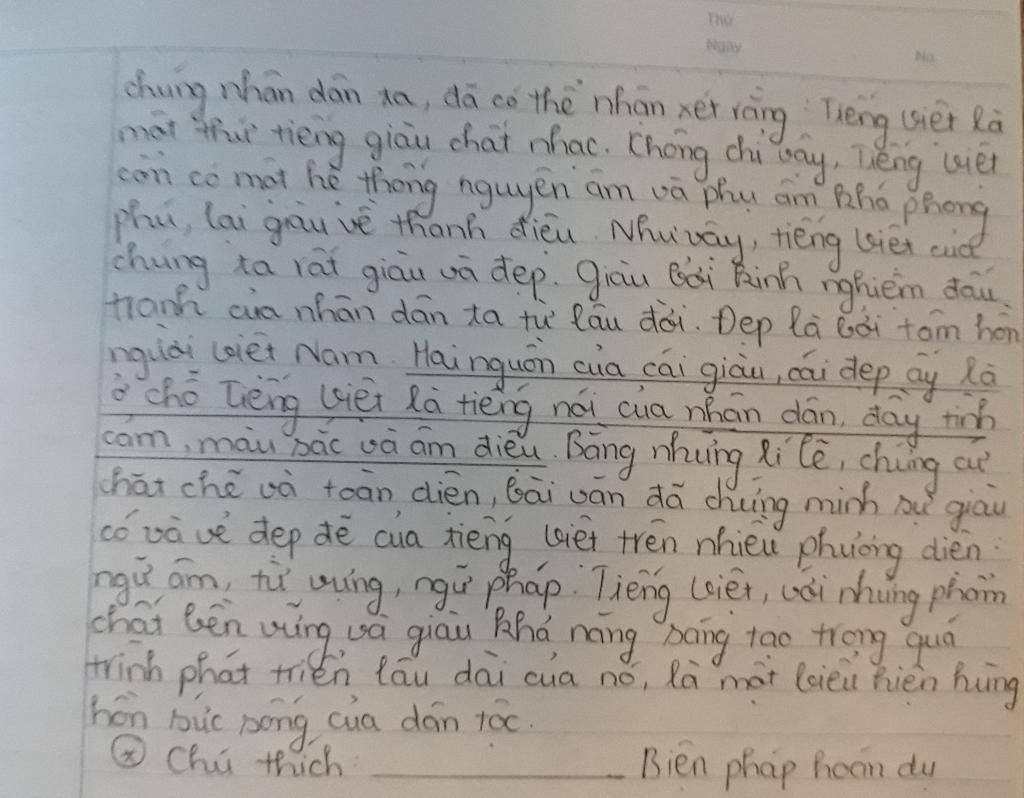 Thứ
Ngày
No.
chúng nhân dân ta, đã có thể nhận xét rằng: Tiếng Việt là
một thứ tiếng giàu chất nhạc. Không chỉ vậy, Tiếng Việt
còn có một hệ thống nguyên âm và phụ âm khá phong
phú, lại giàu về thanh điệu. Như vậy, tiếng Việt của
chúng ta rất giàu và đẹp. Giàu bởi kinh nghiệm đấu
tranh của nhân dân ta từ lâu đời. Đẹp là bởi tâm hồn
người Việt Nam. Hai nguồn của cái giàu, cái đẹp ấy là
ở chỗ Tiếng Việt là tiếng nói của nhân dân, đầy tình
cảm, màu sắc và âm điệu. Bằng những lí lẽ, chứng cứ
chặt chẽ và toàn diện, bài văn đã chứng minh sự giàu
có và vẻ đẹp đẽ của tiếng Việt trên nhiều phương diện:
ngữ âm, từ vựng, ngữ pháp. Tiếng Việt, với những phẩm
chất bền vững và giàu khả năng sáng tạo trong quá
trình phát triển lâu dài của nó, là một biểu hiện hùng
hồn sức sống của dân tộc.
* Chú thích: ____________ Biện pháp hoán dụ